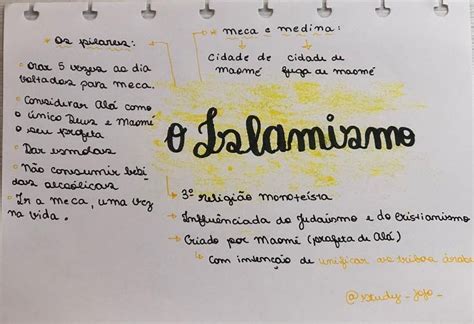 * os pilares:
- Orar 5 vezes ao dia
voltados para meca.
- Considerar Alá como
o único Deus e Maomé
o seu profeta
- Dar esmolas
- Não consumir bebi
das alcoólicas
- Ir a meca, uma vez
na vida.
* meca e medina:
cidade de maomé
cidade de fuga de maomé
O Islamismo
3º religião monoteísta
Influênciada do Judaísmo e do Cristianismo
Criado por Maomé (profeta de Alá)
Com intenção de unificar as tribos árabe
@study_jojo_